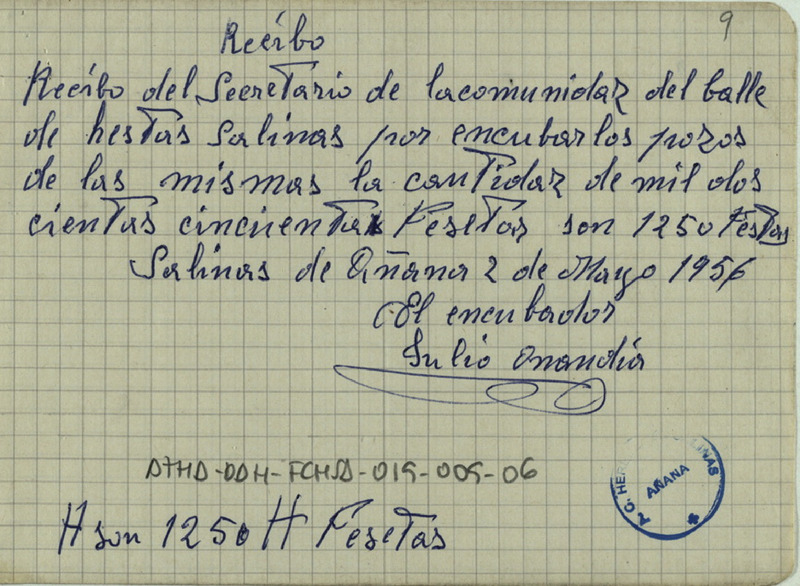 9
Recibo
Recibo del Secretario de lacomunidaz del balle
de hestas Salinas por encubarlos pozos
de las mismas la cantidaz de mil dos
cientas cincuenta Pesetas son 1250 Pestas
Salinas de Añana 2 de Mayo 1956
El encubador
Julio Onandia
ATHA-DAH-FCHSA-019-009-06
AÑANA
H son 1250 H Pesetas